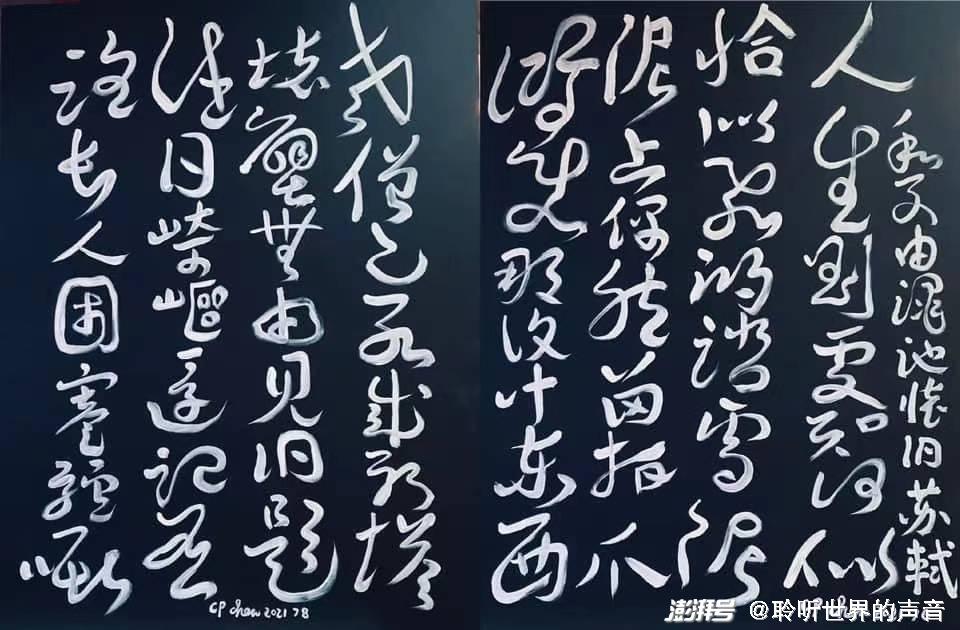 和子由澠池怀旧 苏轼
人生到处知何似
恰似飞鸿踏雪泥
泥上偶然留指爪
鸿飞那复计东西
老僧已死成新塔
壞壁無由见旧题
往日崎嶇还记否
路长人困蹇驴嘶
CP chew 2021 7 8
澎湃号 @聆听世界的声音